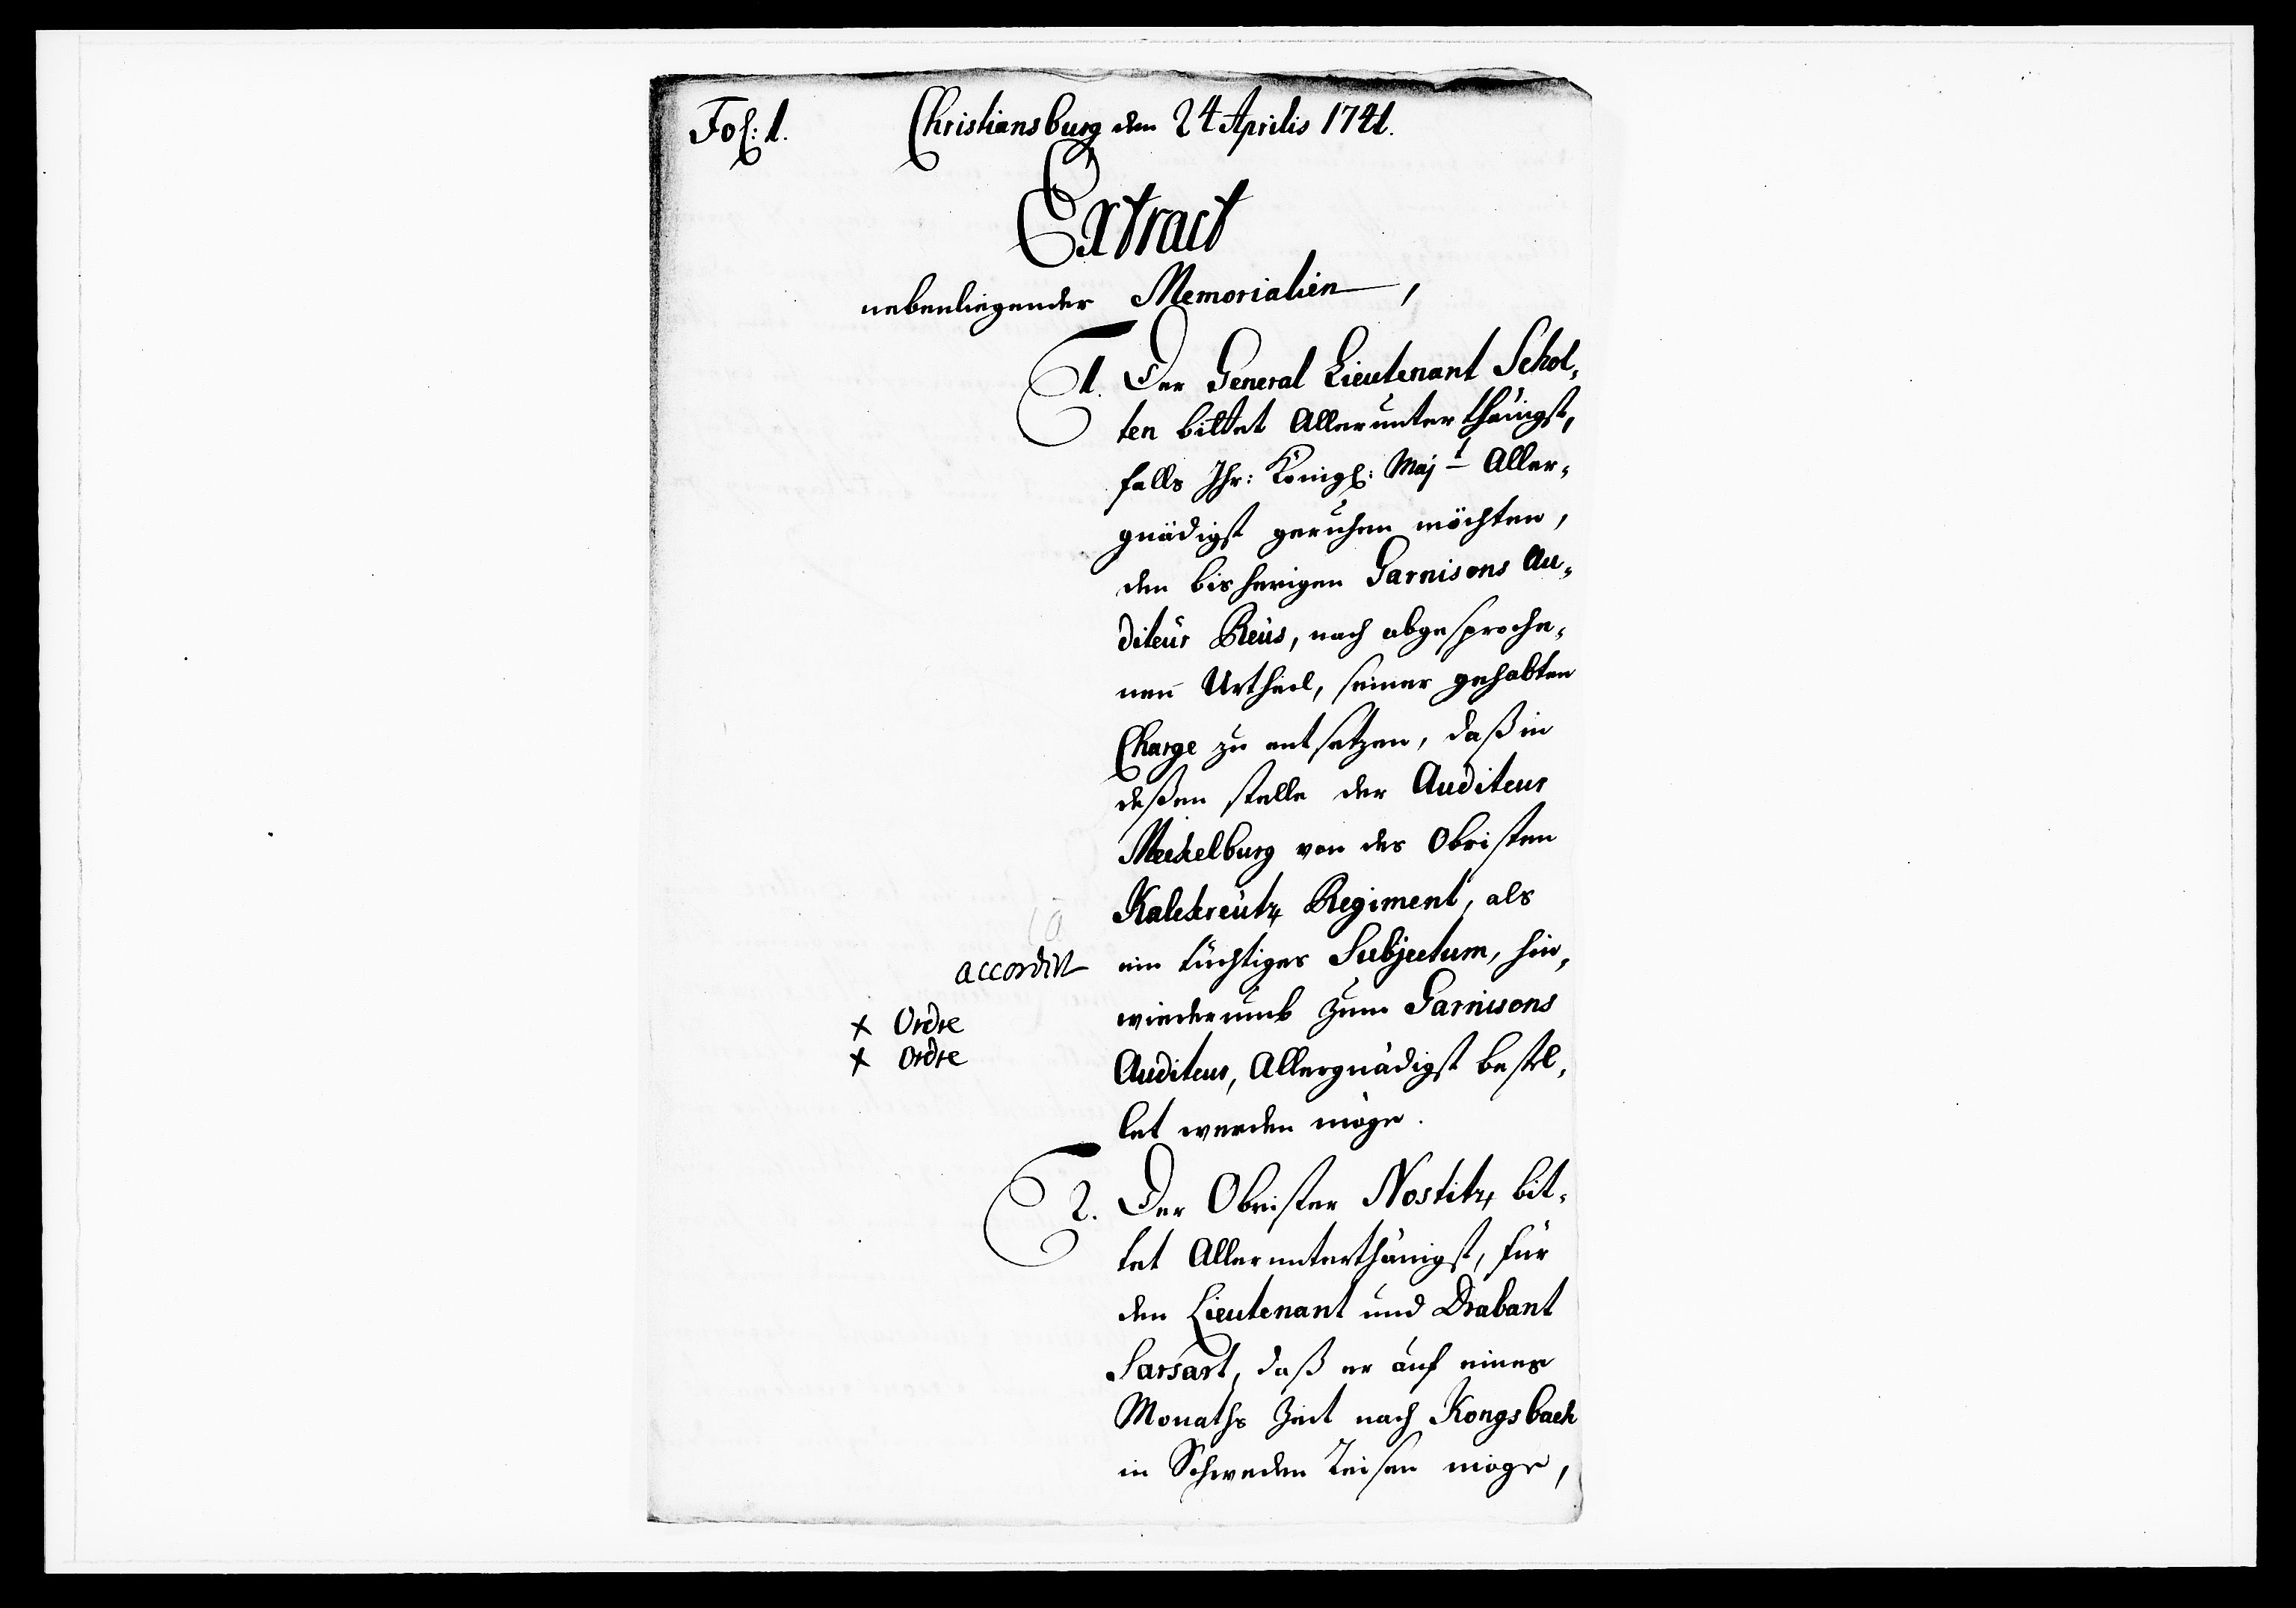 Fol: 1.
Christiansburg den 24 Aprilis 1741.
Extract
nebenliegender Memorialien,
1. Der General Lieutenant Schol„
ten bittet Allerunterthänigst,
falls Ihr: Königl: Maj t Aller„
gnädigst geruhen möchten,
den bisherigen Garnisons Au„
diteur Reus, nach abgesproche„
nen Urtheil, seiner gehabten
Charge zu entsetzen, daß in
deßen stelle der Auditeur
Meckelburg von des Obristen
Kalckreutz Regiment, als
accordirt
ein tüchtiges Subjectum, hin„
x Ordre
wiederumb zum Garnisons
x Ordre
Auditeur, Allergnädigst bestel„
let werden möge.
2. Der Obrister Nostitz bit„
tet Allerunterthänigst, für
den Lieutenant und Drabant
Sarsart, daß er auf eines
Monaths Zeit nach Kongsback
in Schweden Reisen möge,